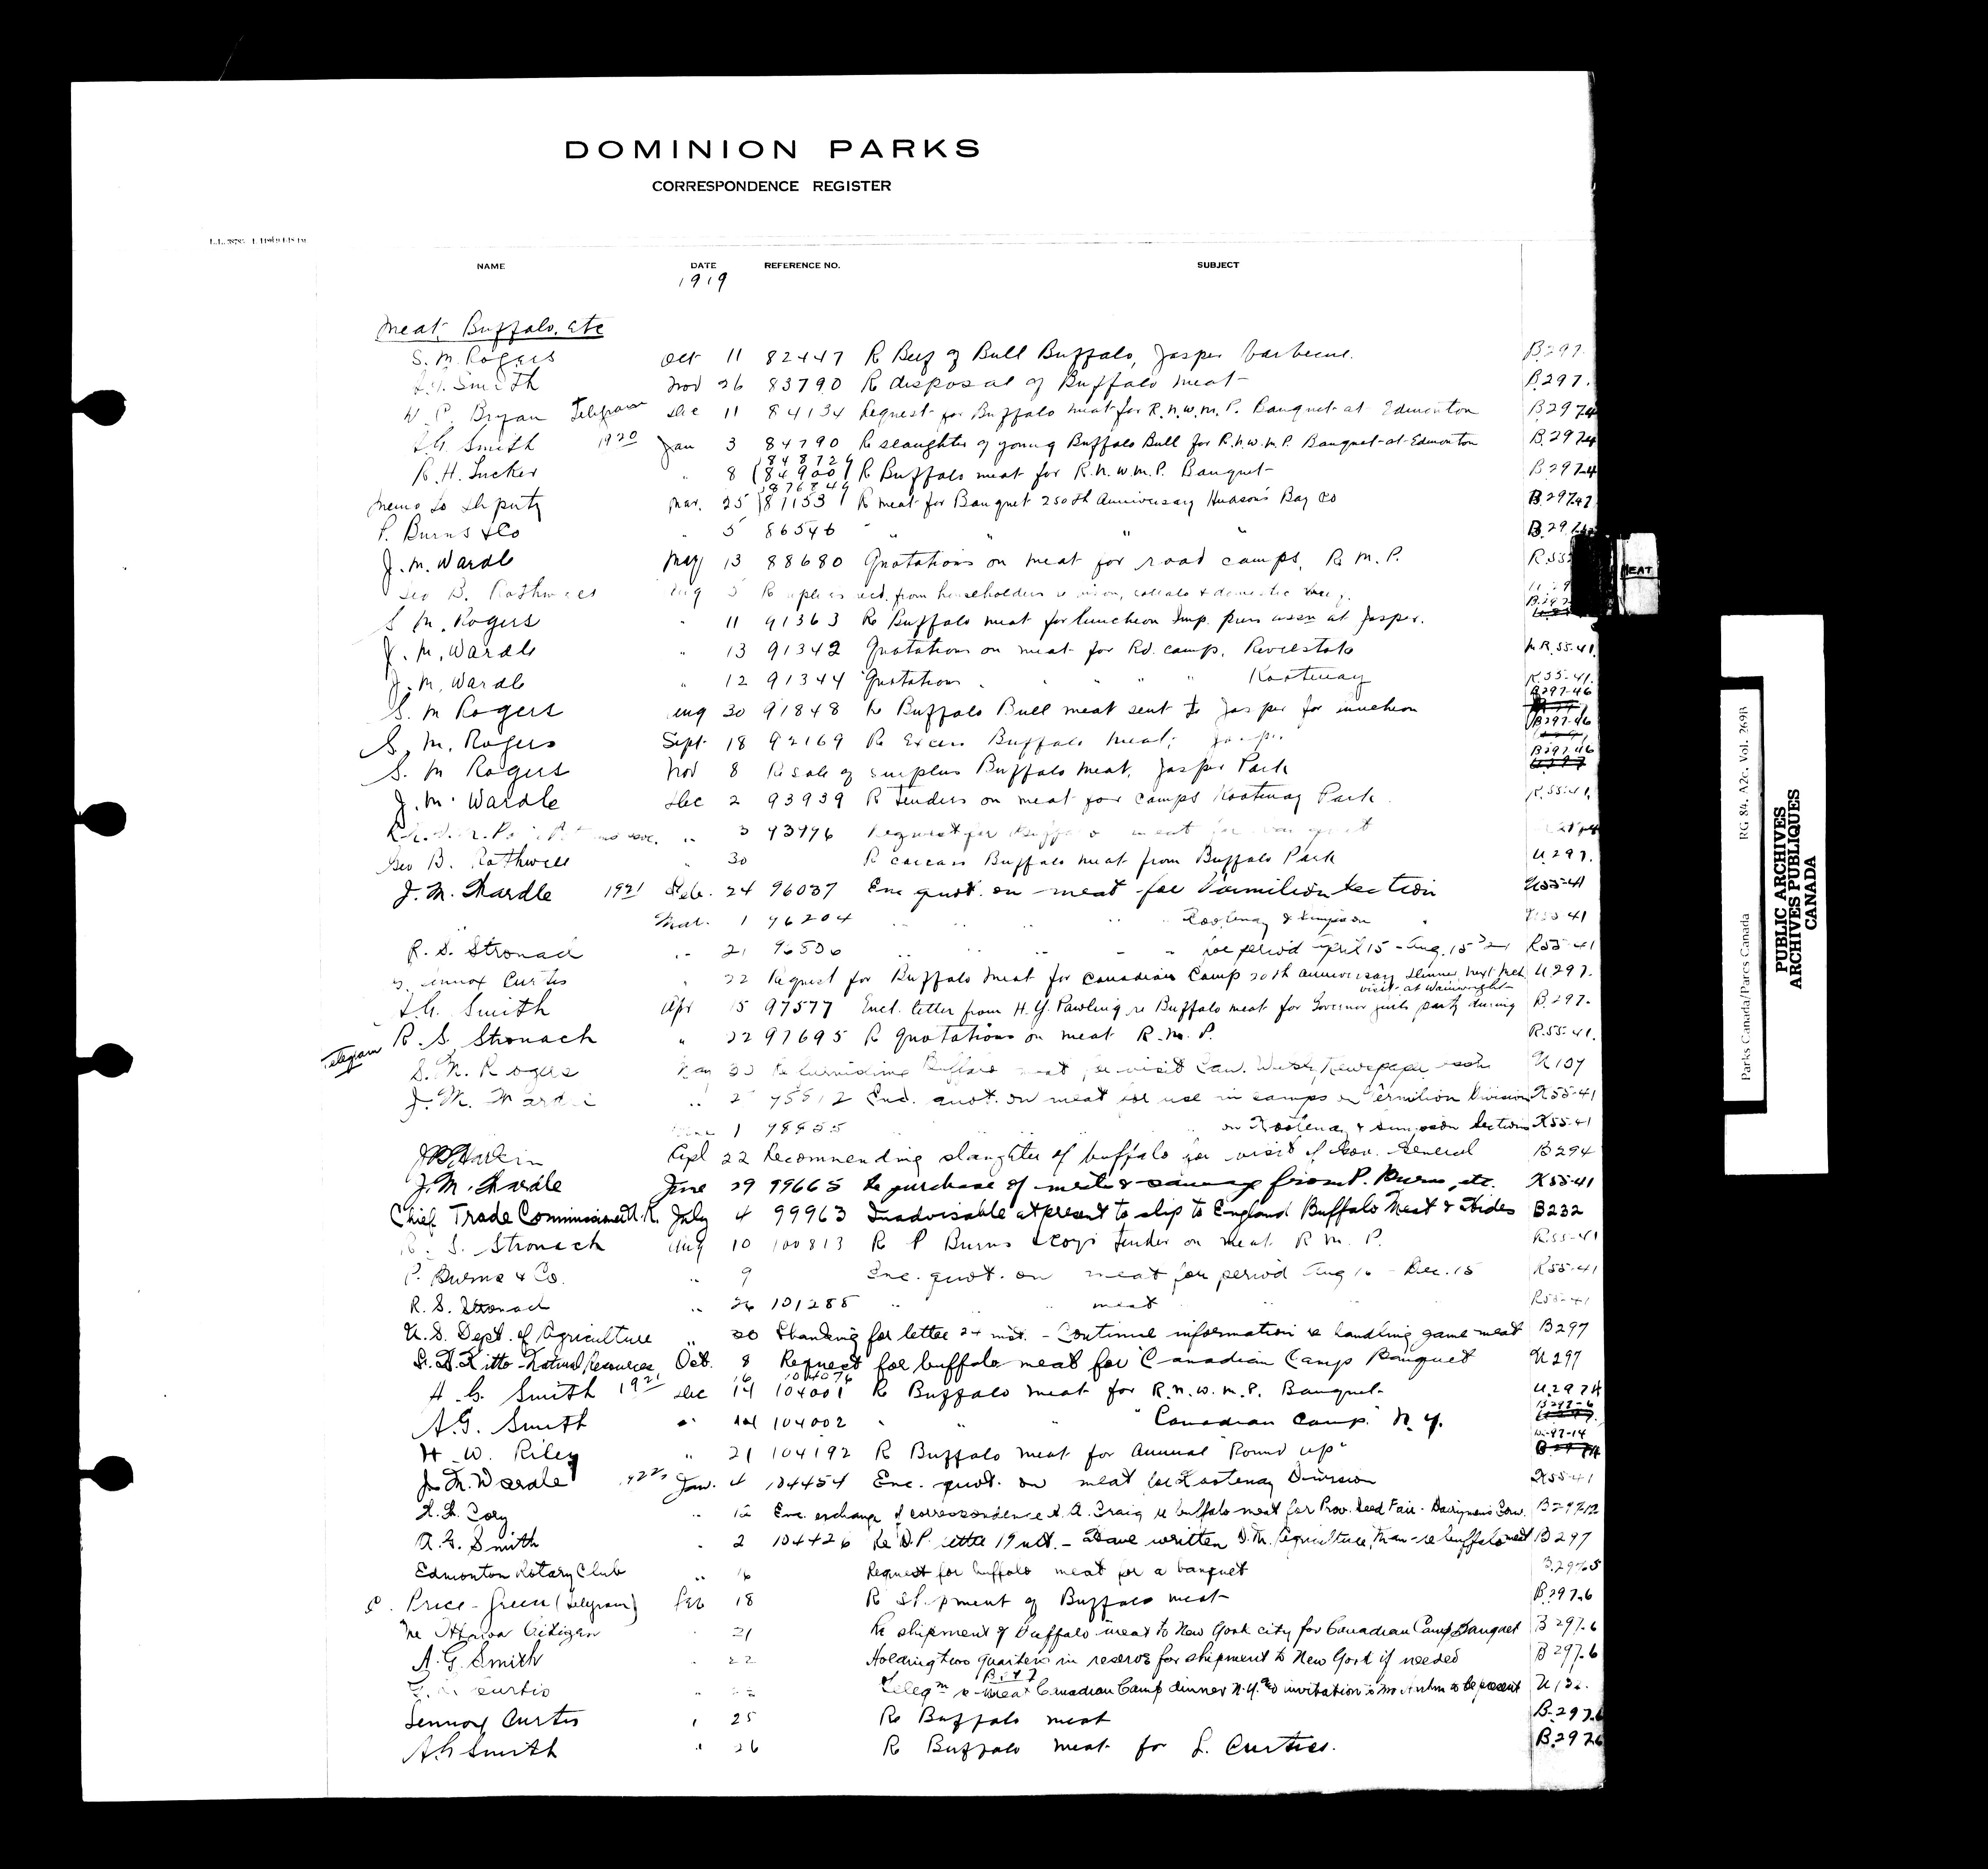 DOMINION PARKS
CORRESPONDENCE REGISTER
NAME DATE REFERENCE NO. SUBJECT
1919
Meat, Buffalo, etc
S. M. Rogers Oct 11 82447 Re Beef of Bull Buffalo, Jasper barbecue. B.297.
Smith Nov 26 83790 Re disposal of Buffalo meat B.297.
W. P. Bryan Telegram Dec 11 84134 Request for Buffalo meat for R.N.W.M.P. Banquet at Edmonton B2974
A.G. Smith 1920 Jan 3 84790 Re slaughter of young Buffalo Bull for R.N.W.M.P. Banquet at Edmonton B.2974
84872
R. H. Tucker " 8 (84900) Re Buffalo meat for R.N.W.M.P. Banquet B2974
Memo to Deputy Mar. 25 81153 Re meat for Banquet 250th Anniversary Hudson's Bay Co
P. Burns & Co " 5 86546 " " "
J. M. Wardle May 13 88680 Quotations on meat for road camps, R.M.P.
Geo B. Rothwell Aug 5 Re replies recd. from householders
S. M. Rogers " 11 91363 Re Buffalo meat for luncheon Imp. press assn at Jasper.
J. M. Wardle " 13 91342 Quotations on meat for Rd. camp, Revelstoke R.55-41.
J. M. Wardle " 12 91344 Quotations " " " " Kootenay R55-41.
B297-46
S. M Rogers Aug 30 91848 Re Buffalo Bull meat sent to Jasper for luncheon
B297-46
S. M. Rogers Sept 18 92169 Re Excess Buffalo Meat, Jasper
B297-46
S. M Rogers Nov 8 Re sale of surplus Buffalo Meat, Jasper Park
J. M. Wardle Dec 2 93939 Re Tenders on meat for camps Kootenay Park. R.55-41.
" 3 93996 Request for Buffalo meat for banquet
Geo B. Rothwell " 30 Re carcass Buffalo meat from Buffalo Park U.297.
J. M. Wardle 1921 Feb. 24 96037 Enc quot. on meat for Vermilion Section K55-41
Mar. 1 96204 " " " Kootenay & Simpson " K55-41
R. S. Stronach " 21 96536 " " " " for period April 15 - Aug. 15 '21 R55-41
Lennox Curtis " 22 Request for Buffalo Meat for Canadian Camp 20th anniversary dinner, next Feb U297.
visit at Wainwright
A.G. Smith Apr 15 97577 Encl. letter from H. Y. Pawling re Buffalo meat for Governor party during B.297.
R. S. Stronach " 22 97695 Re Quotations on meat R.M.P. R.55-41.
Telegram
S. M. Rogers May 30 Re furnishing Buffalo meat for visit Can. Newspaper assn U107
J. M. Wardle " 2 Encl. quot. on meat for use in camps on Vermilion Division K55-41
June 1 98855 " " " on Kootenay & Simpson Section K55-41
J B Harkin Apl 22 Recommending slaughter of buffalo for visit of Gov. General B294
J. M. Wardle June 29 99665 Re purchase of meat & sausage from P. Burns, etc. K55-41
Chief Trade Commissioner July 4 99963 Inadvisable at present to ship to England Buffalo Meat & Hides B232
R. S. Stronach Aug 10 100813 Re P Burns & Coy's tender on meat R.M.P. R55-41
P. Burns & Co. " 9 Enc. quot. on meat for period Aug 16 - Dec. 15 R55-41
R. S. Stronach " 26 101288 " " meat " " R55-41
U.S. Dept. of Agriculture " 30 Thanking for letter 24 inst. - Continue information re handling game meat B297
Kitto - Natural Resources Oct. 8 Request for buffalo meat for Canadian Camp Banquet U297
16 104076
A. G. Smith 1921 Dec 14 104001 Re Buffalo meat for R.N.W.M.P. Banquet U.2974
B297-6
A.G. Smith " 14 104002 " " " "Canadian Camp" N.Y.
H. W. Riley " 21 104192 Re Buffalo meat for Annual "Round up"
J. M. Wardle 1922 Jan. 4 104454 Enc. quot. on meat for Kootenay Division K55-41
Cory " 12 Enc. exchange of correspondence A. Craig re buffalo meat for Prov. Seed Fair - Dairymen's Con. B297.12
A. G. Smith " 2 104426 Re D.P. letter 19 ult. - Have written D.M. Agriculture, Man. re buffalo meat B297
Edmonton Rotary Club " 16 Request for buffalo meat for a banquet B.297.5
C. Price-Green (Telegram) Feb 18 Re Shipment of Buffalo meat B.297.6
The Ottawa Citizen " 21 Re shipment of buffalo meat to New York city for Canadian Camp Banquet B297.6
A. G. Smith " 22 Holding two quarters in reserve for shipment to New York if needed B297.6
Curtis " 22 Telegm re meat Canadian Camp dinner N.Y. and invitation to be present
Lennox Curtis " 25 Re Buffalo meat B.297.6
A.G Smith " 26 Re Buffalo meat for L. Curties. B.297.6
MEAT
Parks Canada/Parcs Canada RG 84, A2c, Vol. 269B
PUBLIC ARCHIVES
ARCHIVES PUBLIQUES
CANADA